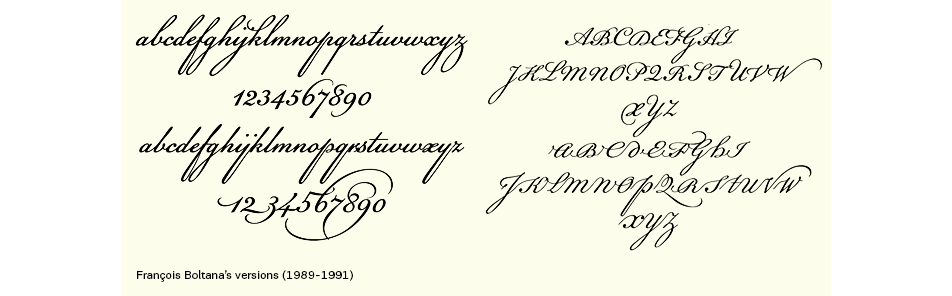 abcdefghijklmnopqrstuvwxyz
1234567890
abcdefghijklmnopqrstuvwxyz
1234567890
ABCDEFGHI
JKLMNOPQRSTUVW
XYZ
ABCDEFGHI
JKLMNOPQRSTUVW
XYZ
François Boltana's versions (1989-1991)